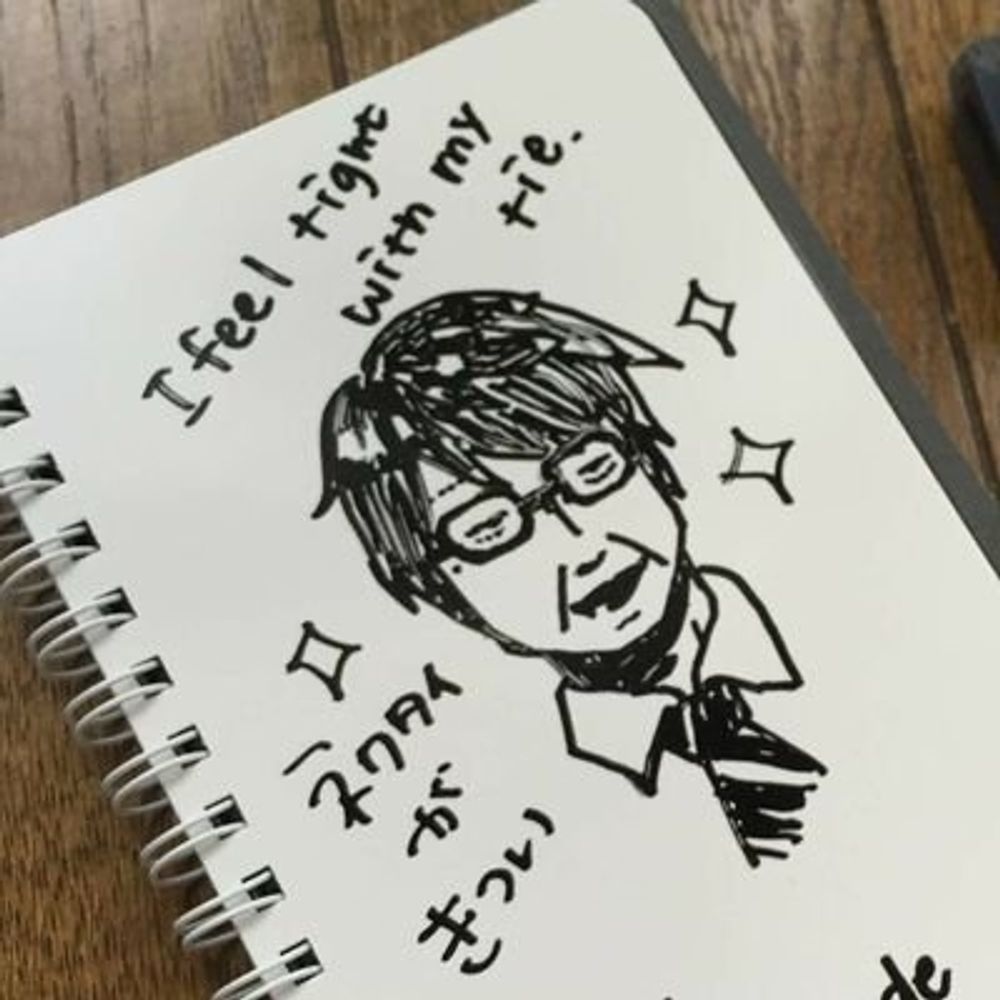 I feel tight
with my
tie.
ネクタイ
が
きつい
de